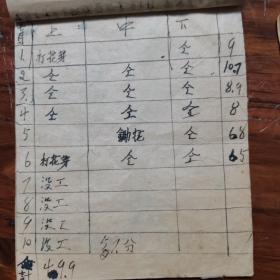 上 中 下
1 打花芽 仝 9
2 仝 仝 仝 10.7
3 仝 仝 仝 8.9
4 仝 仝 仝 8
5 仝 6.8
6 打花芽 仝 仝 6.5
7 没工
8 没工
9 没工
10 没工